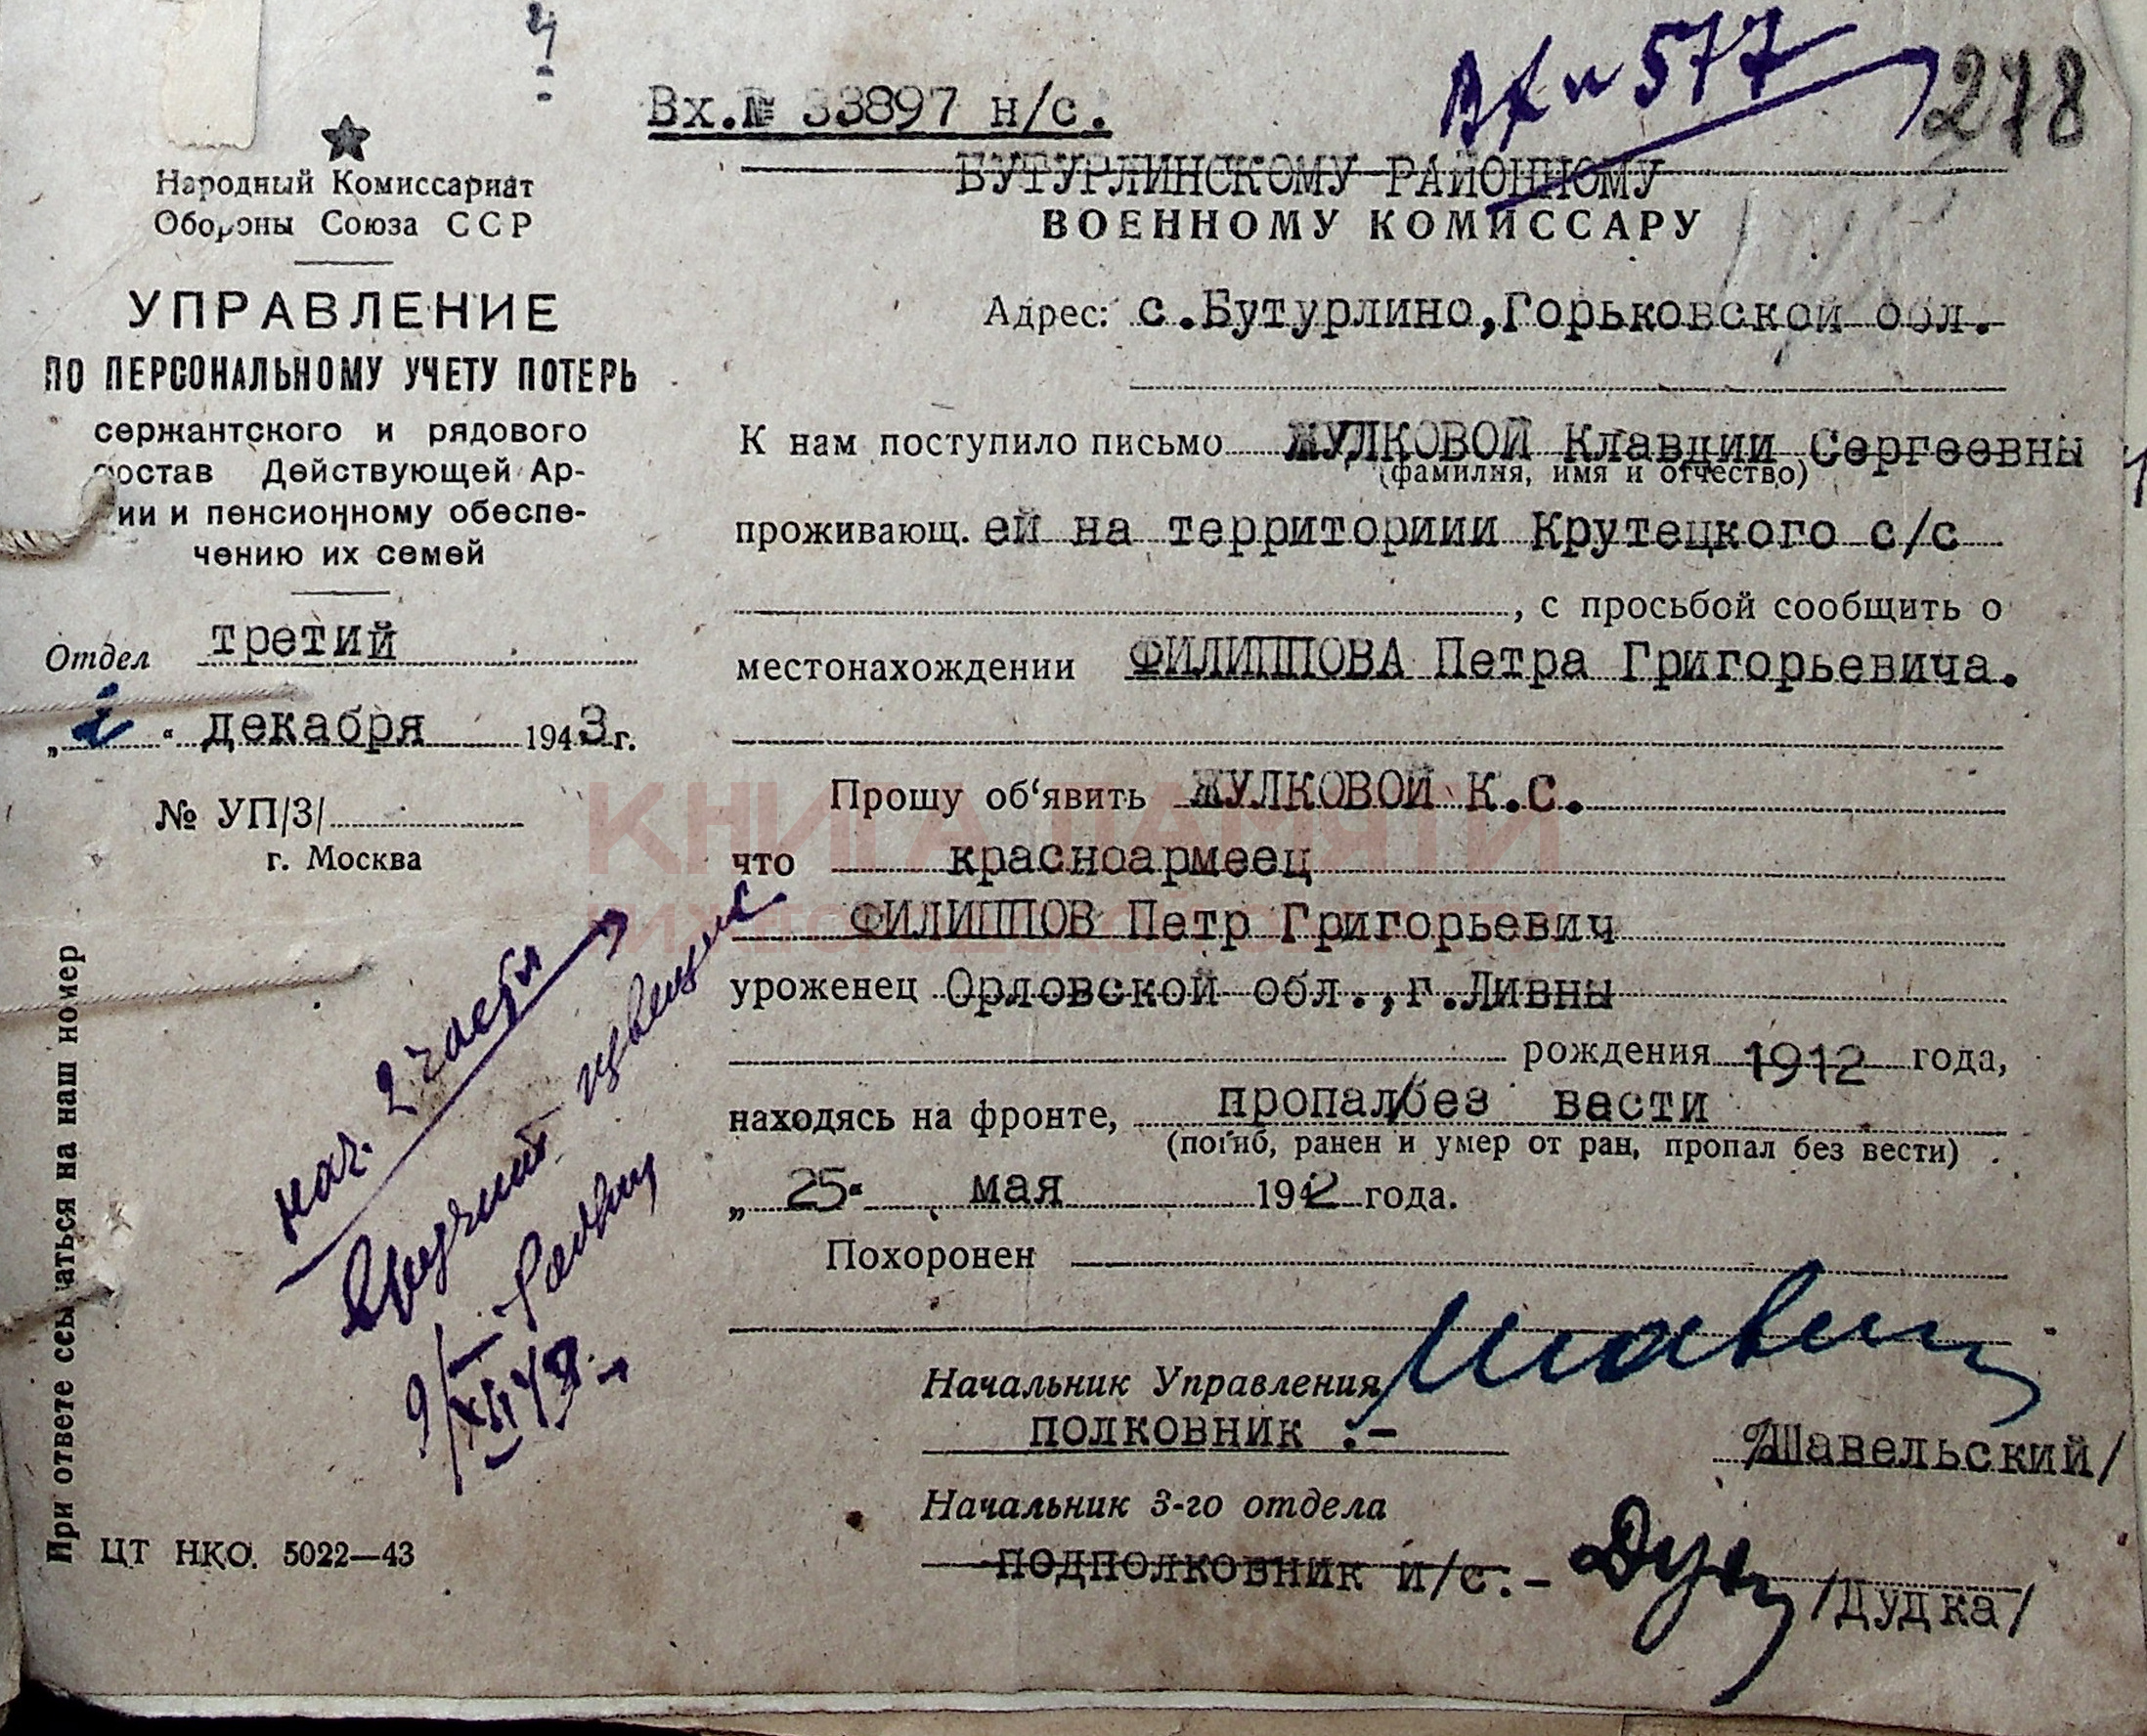 Вх.№ 33897 н/с.
Вх № 577
278
Народный Комиссариат
Обороны Союза ССР
УПРАВЛЕНИЕ
ПО ПЕРСОНАЛЬНОМУ УЧЕТУ ПОТЕРЬ
сержантского и рядового
состав Действующей Ар-
ии и пенсионному обеспе-
чению их семей
Отдел третий
декабря 1943 г.
№ УП/3/
г. Москва
БУТУРЛИНСКОМУ РАЙОННОМУ
ВОЕННОМУ КОМИССАРУ
Адрес: с.Бутурлино,Горьковской обл.
К нам поступило письмо ЖУЛКОВОЙ Клавдии Сергеевны
(фамилия, имя и отчество)
проживающ. ей на территориии Крутецкого с/с
, с просьбой сообщить о
местонахождении ФИЛИППОВА Петра Григорьевича.
Прошу об‘явить ЖУЛКОВОЙ К.С.
что красноармеец
ФИЛИППОВ Петр Григорьевич
уроженец Орловской обл.,г.Ливны
рождения 1912 года,
находясь на фронте, пропал/без вести
(погиб, ранен и умер от ран, пропал без вести)
„25“ мая 1942 года.
Похоронен
Начальник Управления
полковник :-
/Шавельский/
Начальник 3-го отдела
подполковник и/с.-
/Дудка/
нач. 2 части
Вручить извещение
9/XII 43.
При ответе ссылаться на наш номер
ЦТ НКО. 5022—43
КНИГА ПАМЯТИ